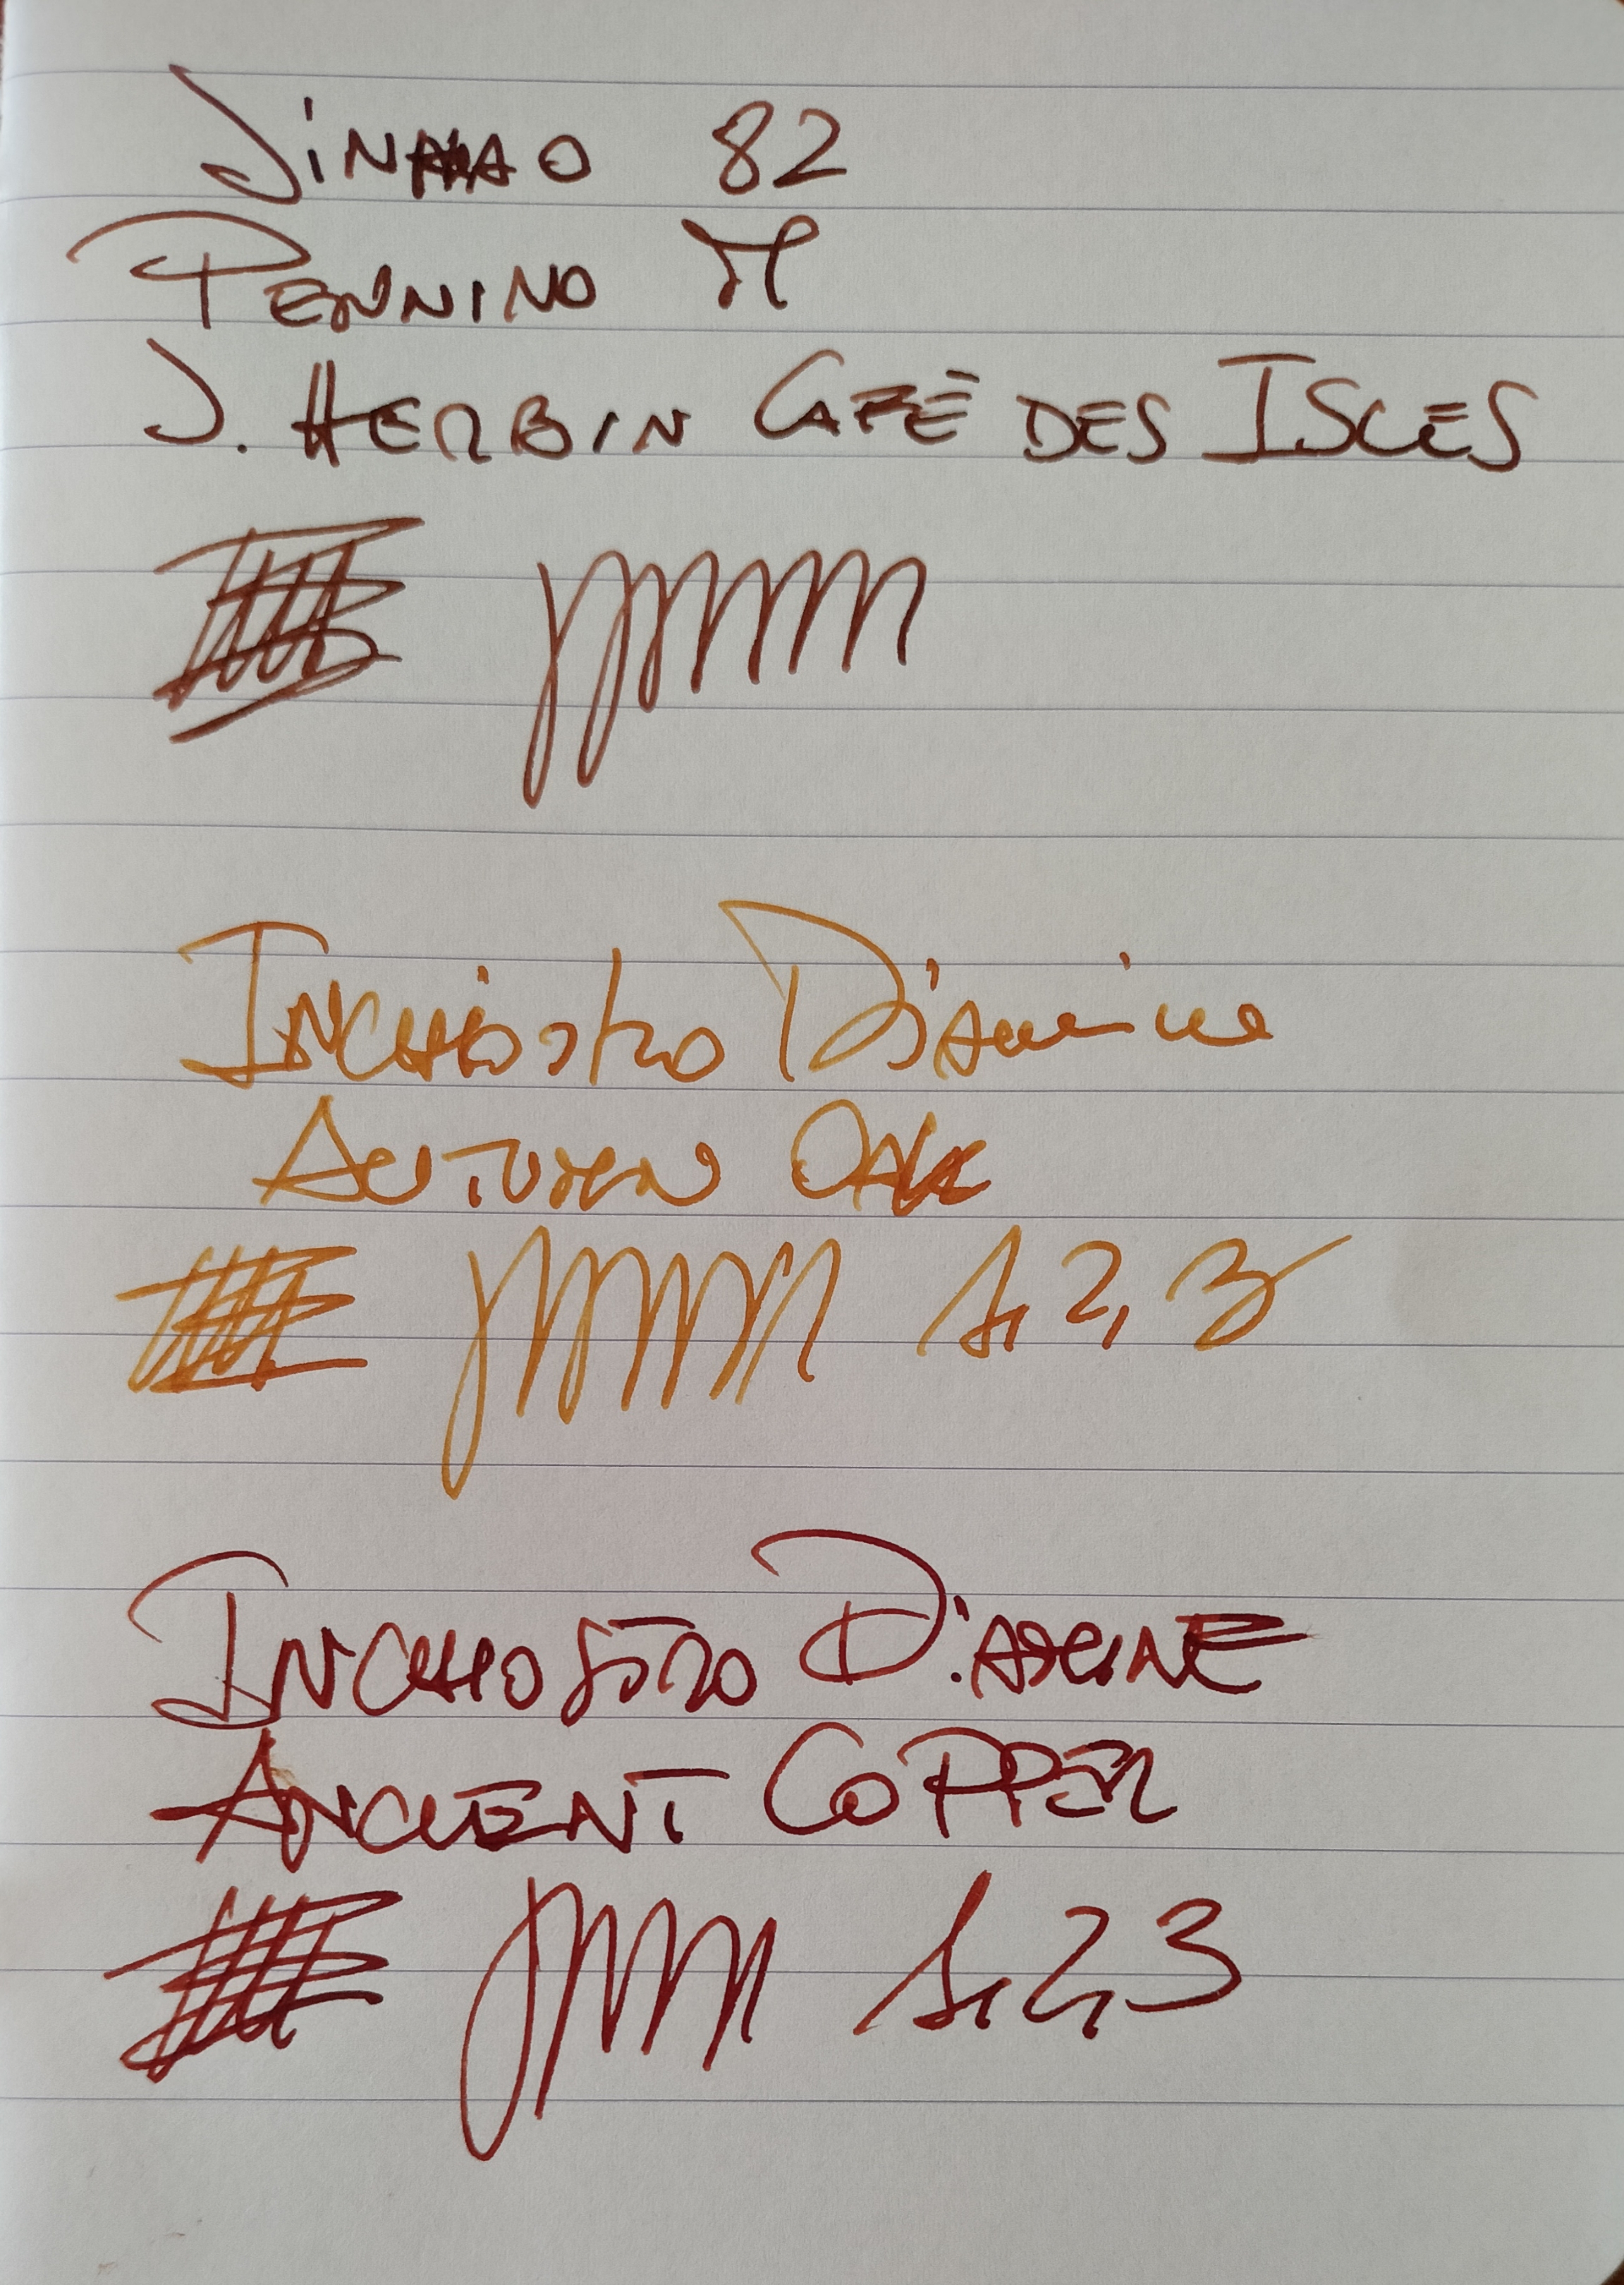 JINHAO 82
PENNINO M
J. HERBIN CAFÈ DES ISLES
INCHIOSTRO Diamine
AUTUMN OAK
1, 2, 3
INCHIOSTRO DIAMINE
ANCIENT COPPER
1, 2, 3